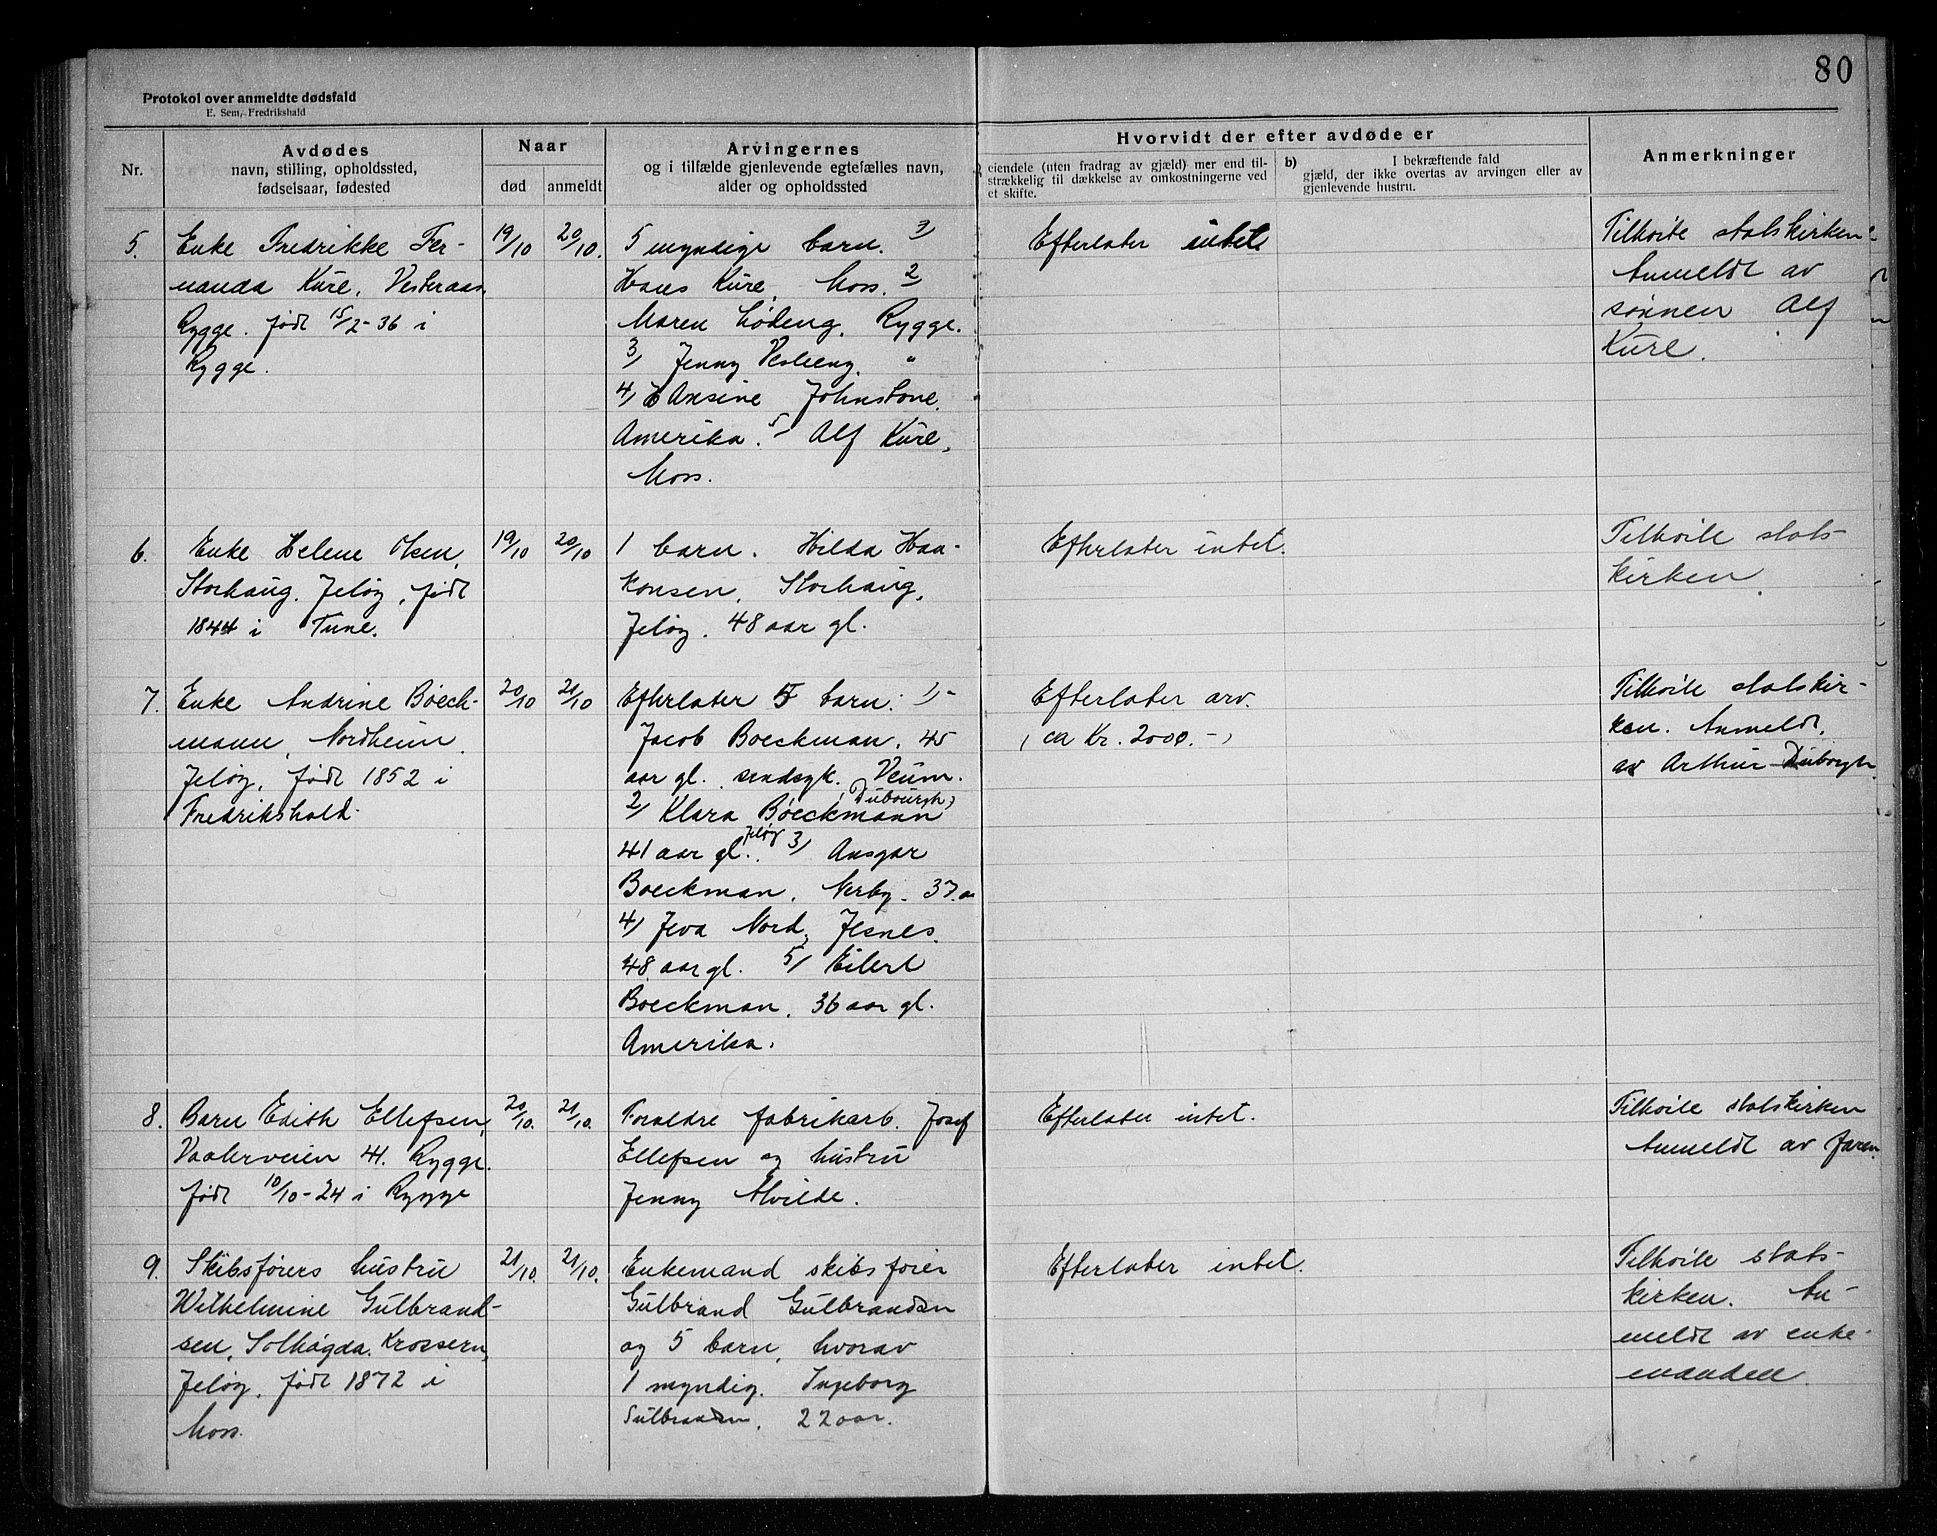 80
Protokol over anmeldte dødsfald
E. Sem, Fredrikshald
Nr.
Avdødes
navn, stilling, opholdssted,
fødselsaar, fødested
Naar
død
anmeldt
Arvingernes
og i tilfælde gjenlevende egtefælles navn,
alder og opholdssted
Hvorvidt der efter avdøde er
eiendele (uten fradrag av gjæld) mer end til-
strækkelig til dækkelse av omkostningerne ved
et skifte.
b)
I bekræftende fald
gjæld, der ikke overtas av arvingen eller av
gjenlevende hustru.
Anmerkninger
5.
Enke Fredrikke Fer-
nanda Kure, Vesteraas,
Rygge. født 15/2-36 i
Rygge.
19/10
20/10.
5 myndige barn.
Hans Kure, Moss. 2/
Maren Lødeng, Rygge.
3/ Jenny Vesteng, "
4/ Hansine Johnstone,
Amerika. 5/ Alf Kure,
Moss.
Efterlater intet
Tilhørte statskirken
Anmeldt av
sønnen Alf
Kure.
6.
Enke Helene Olsen,
Storhaug, Jeløy, født
1844 i Tune.
19/10
20/10
1 barn. Hilda Haa-
konsen, Storhaug,
Jeløy. 48 aar gl.
Efterlater intet.
Tilhørte stats-
kirken
7.
Enke Andrine Bøeck-
mann, Nordheim,
Jeløy, født 1852 i
Fredrikshald.
20/10
21/10
Efterlater 5 barn. 1/-
Jacob Boeckman, 45
aar gl. sindsyk. Veum.
(Dubourgh)
2/ Klara Bøeckmann
41 aar gl. Jeløy 3/ Ansgar
Boeckman, Nerby. 37 a
4/ Jeva Nord, Jesnes.
48 aar gl. 5/ Eilert
Boeckman, 36 aar gl.
Amerika.
Efterlater arv.
(ca Kr. 2000.-)
Tilhørte statskir-
ken. Anmeldt,
av Arthur Duborgh.
8.
Barn Edith Ellefsen,
Vaalerveien 41. Rygge.
født 10/10-24 i Rygge
20/10.
21/10.
Foraldre fabrikarb. Josef
Ellefsen og hustru
Jenny Alvilde.
Efterlater intet.
Tilhørte statskirken
Anmeldt av faren.
9.
Skibsførers hustru
Wilhelmine Gulbrand-
sen, Solhøgda, Krossern,
Jeløy, født 1872 i
Moss.
21/10.
21/10.
Enkemand skibsfører
Gulbrand Gulbrandsen
og 5 barn, hvorav
1 myndig. Ingeborg
Gulbrandsen, 22 aar.
Efterlater intet.
Tilhørte stats-
kirken. An-
meldt av enke-
manden.